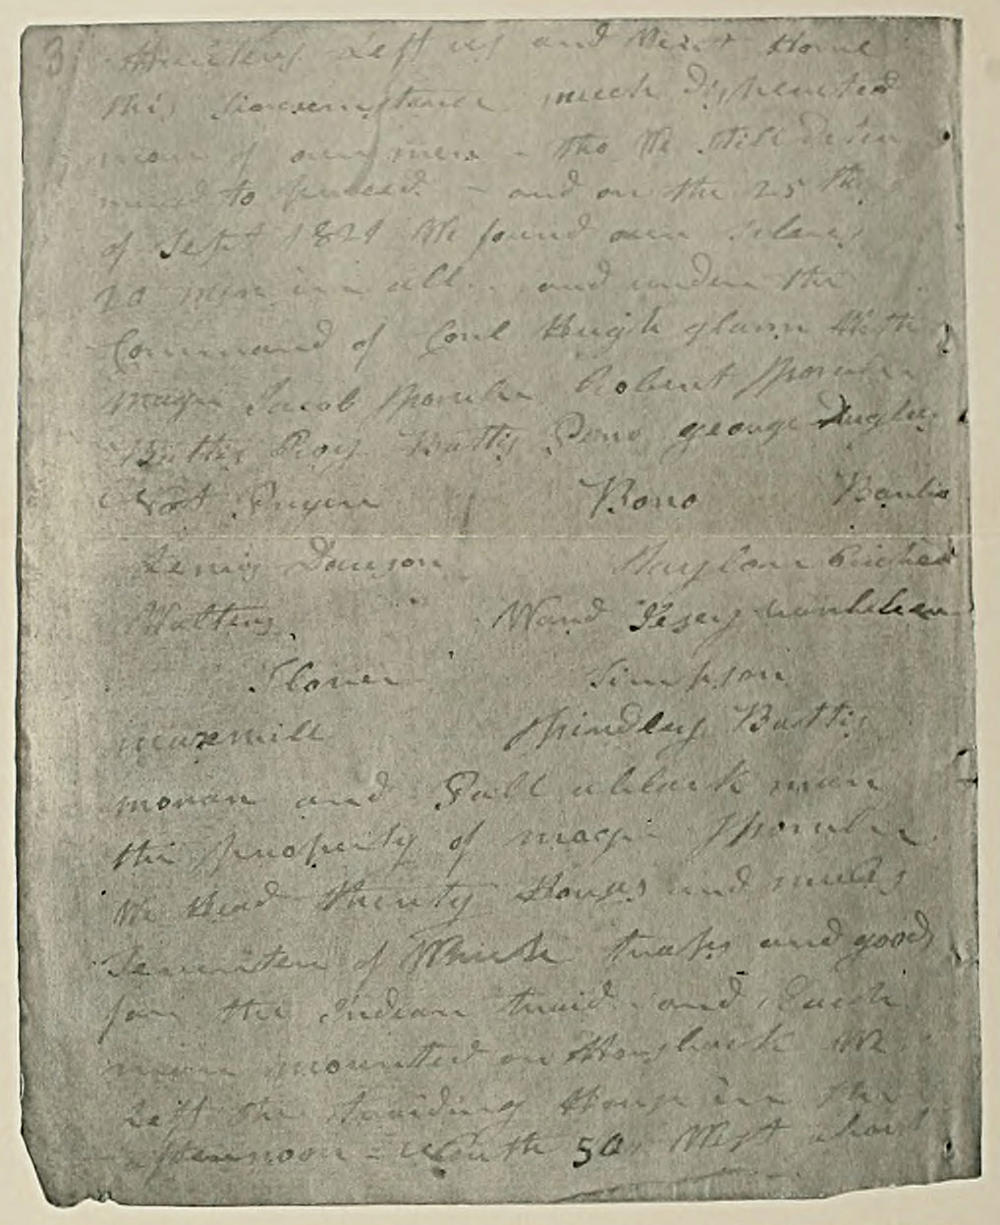 3
Hunters left us and Went Home
this sircumstance much disheated
moan of our men - tho We still deter
mined to proceed - and on the 25th
of Sept 1821 We found our Selves
20 men in all and under the
Command of Conl Hugh glann With
magre Jacob fhowler Robert fhowler
Battis Roy Battis Peno george Duglas
Nat Pryer Bono Barbo
Lewis Dawson Taylor Richard
Walters Ward Jesey vanbeber
Slover Simpson
maxwill fhindley Battis
moran and Pall a black man
the property of magre fhowler
We Head thirty Horses and mules
Seventeen of Which traps and goods
for the Indean traid and Each
man mounted on Horsback We
Left the traiding House in the
afternoon - South 50 West about